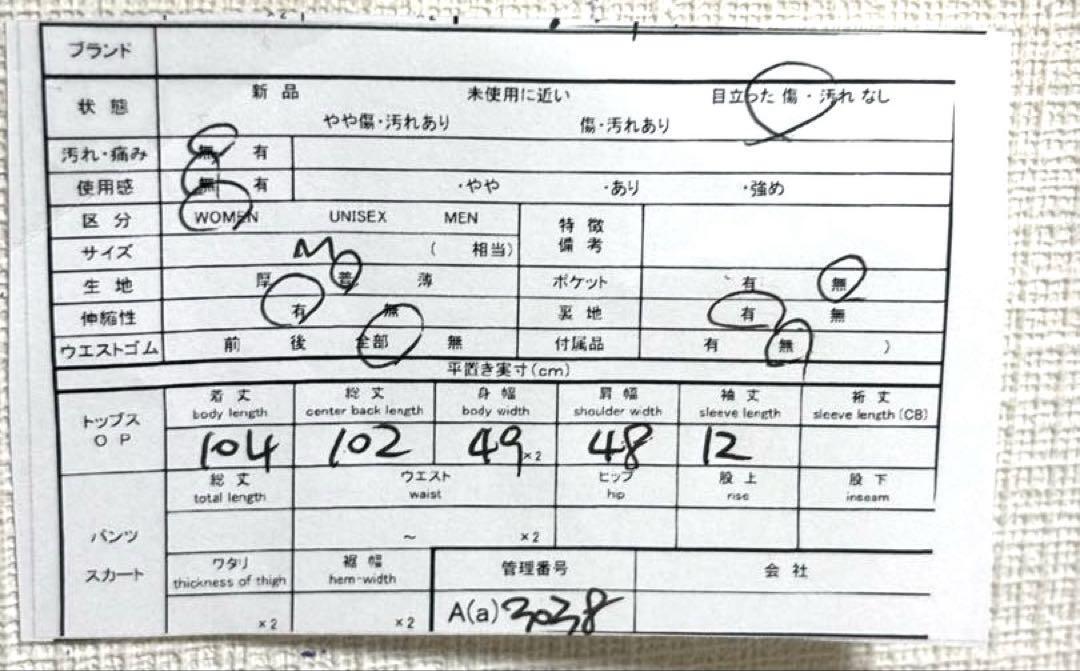 ブランド
状態 新品 未使用に近い 目立った 傷・汚れ なし
やや傷・汚れあり 傷・汚れあり
汚れ・痛み 無 有
使用感 無 有 ・やや ・あり ・強め
区分 WOMEN UNISEX MEN 特徴
備考
サイズ M ( 相当)
生地 厚 普 薄 ポケット 有 無
伸縮性 有 無 裏地 有 無
ウエストゴム 前 後 全部 無 付属品 有 無 )
平置き実寸(cm)
トップス
OP
着丈 総丈 身幅 肩幅 袖丈 裄丈
body length center back length body width shoulder width sleeve length sleeve length (CB)
104 102 49 ×2 48 12
総丈 ウエスト ヒップ 股上 股下
total length waist hip rise inseam
パンツ ~ ×2
スカート
ワタリ 裾幅 管理番号 会社
thickness of thigh hem-width
×2 ×2 A(a) 3038